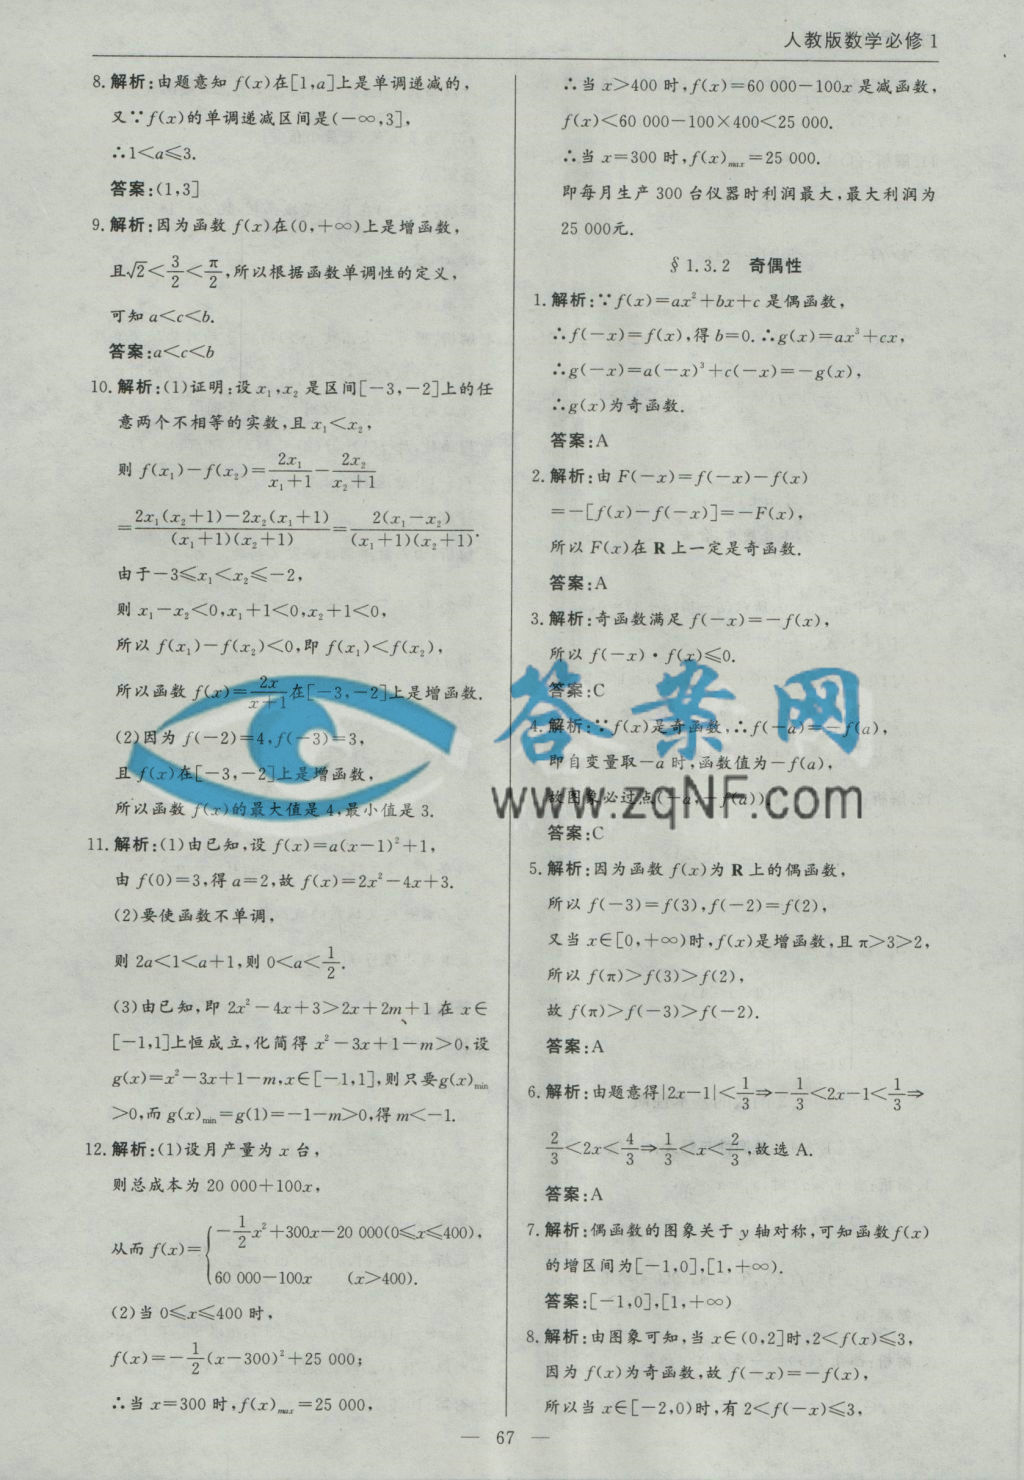 人教版数学必修1
8.解析:由题意知 f(x)在[1,a]上是单调递减的,
又∵f(x)的单调递减区间是(-∞,3],
∴1<a≤3.
答案:(1,3]
9.解析:因为函数 f(x)在(0,+∞)上是增函数,
且√2<3/2<π/2,所以根据函数单调性的定义,
可知 a<c<b.
答案:a<c<b
10.解析:(1)证明:设 x₁,x₂ 是区间[-3,-2]上的任
意两个不相等的实数,且 x₁<x₂,
则 f(x₁)-f(x₂)=2x₁/(x₁+1)-2x₂/(x₂+1)
=[2x₁(x₂+1)-2x₂(x₁+1)]/[(x₁+1)(x₂+1)]=2(x₁-x₂)/[(x₁+1)(x₂+1)].
由于-3≤x₁<x₂≤-2,
则 x₁-x₂<0,x₁+1<0,x₂+1<0,
所以 f(x₁)-f(x₂)<0,即 f(x₁)<f(x₂),
所以函数 f(x)=2x/(x+1)在[-3,-2]上是增函数.
(2)因为 f(-2)=4,f(-3)=3,
且 f(x)在[-3,-2]上是增函数,
所以函数 f(x)的最大值是 4,最小值是 3.
11.解析:(1)由已知,设 f(x)=a(x-1)²+1,
由 f(0)=3,得 a=2,故 f(x)=2x²-4x+3.
(2)要使函数不单调,
则 2a<1<a+1,则 0<a<1/2.
(3)由已知,即 2x²-4x+3>2x+2m+1 在 x∈
[-1,1]上恒成立,化简得 x²-3x+1-m>0,设
g(x)=x²-3x+1-m,x∈[-1,1],则只要g(x)min
>0,而 g(x)min=g(1)=-1-m>0,得 m<-1.
12.解析:(1)设月产量为 x 台,
则总成本为 20 000+100x,
从而 f(x)={-1/2x²+300x-20 000(0≤x≤400),
60 000-100x (x>400).
(2)当 0≤x≤400 时,
f(x)=-1/2(x-300)²+25 000;
∴当 x=300 时,f(x)max=25 000,
∴当 x>400 时,f(x)=60 000-100x 是减函数,
f(x)<60 000-100×400<25 000.
∴当 x=300 时,f(x)max=25 000.
即每月生产 300 台仪器时利润最大,最大利润为
25 000元.
§1.3.2 奇偶性
1.解析:∵f(x)=ax²+bx+c 是偶函数,
∴f(-x)=f(x),得 b=0.∴g(x)=ax³+cx,
∴g(-x)=a(-x)³+c(-x)=-g(x),
∴g(x)为奇函数.
答案:A
2.解析:由 F(-x)=f(-x)-f(x)
=-[f(x)-f(-x)]=-F(x),
所以 F(x)在 R 上一定是奇函数.
答案:A
3.解析:奇函数满足 f(-x)=-f(x),
所以 f(-x)·f(x)≤0.
答案:C
4.解析:∵f(x)是奇函数,∴f(-a)=-f(a),
即自变量取-a 时,函数值为-f(a),
故图象必过点(-a,-f(a)).
答案:C
5.解析:因为函数 f(x)为 R 上的偶函数,
所以 f(-3)=f(3),f(-2)=f(2),
又当 x∈[0,+∞)时,f(x)是增函数,且 π>3>2,
所以 f(π)>f(3)>f(2),
故 f(π)>f(-3)>f(-2).
答案:A
6.解析:由题意得|2x-1|<1/3⇒-1/3<2x-1<1/3⇒
2/3<2x<4/3⇒1/3<x<2/3,故选 A.
答案:A
7.解析:偶函数的图象关于 y 轴对称,可知函数f(x)
的增区间为[-1,0],[1,+∞).
答案:[-1,0],[1,+∞)
8.解析:由图象可知,当 x∈(0,2]时,2<f(x)≤3,
因为 f(x)为奇函数,故 f(-x)=-f(x),
所以当 x∈[-2,0)时,有 2<f(-x)≤3,
— 67 —
答案网
www.zqNF.com